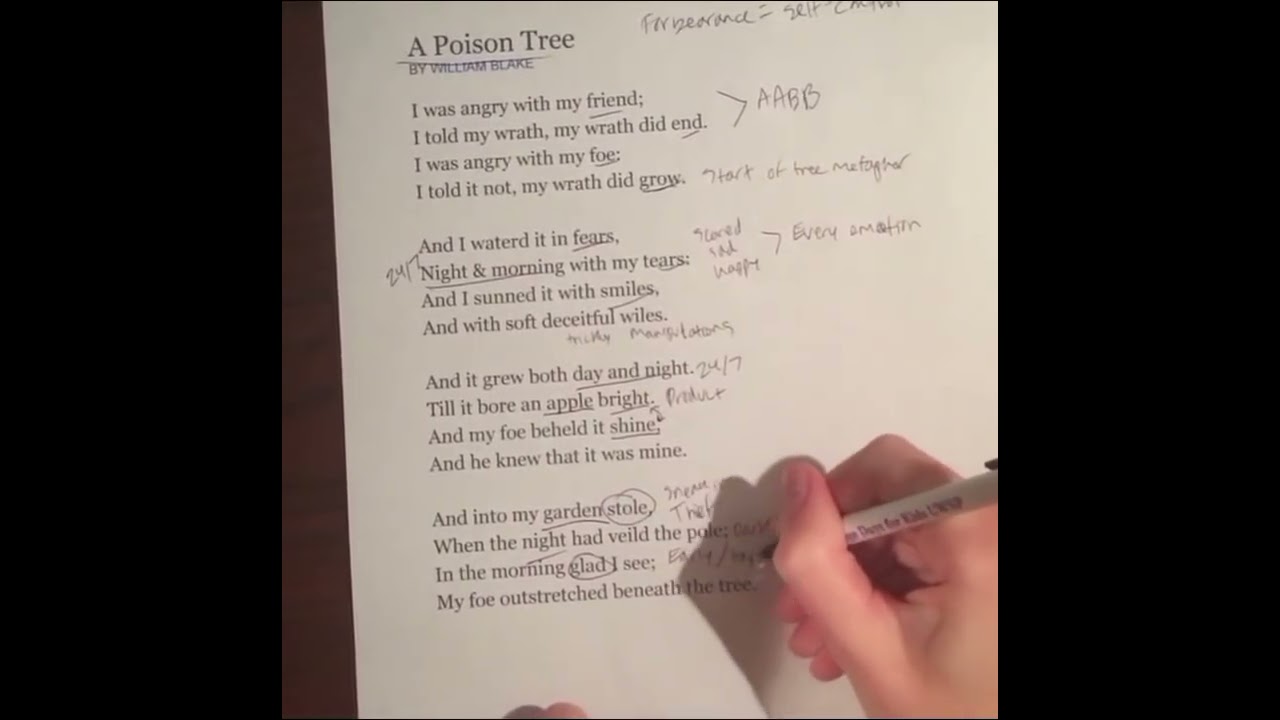 Forbearance = self control
A Poison Tree
BY WILLIAM BLAKE
I was angry with my friend;
I told my wrath, my wrath did end.
> AABB
I was angry with my foe:
I told it not, my wrath did grow. Start of tree metapher
And I waterd it in fears,
scared
sad
happy
> Every emotion
24/7 Night & morning with my tears:
And I sunned it with smiles,
And with soft deceitful wiles.
tricky Manipulations
And it grew both day and night. 24/7
Till it bore an apple bright. Product
And my foe beheld it shine,
And he knew that it was mine.
And into my garden stole,
Thief
When the night had veild the pole;
In the morning glad I see;
My foe outstretched beneath the tree.